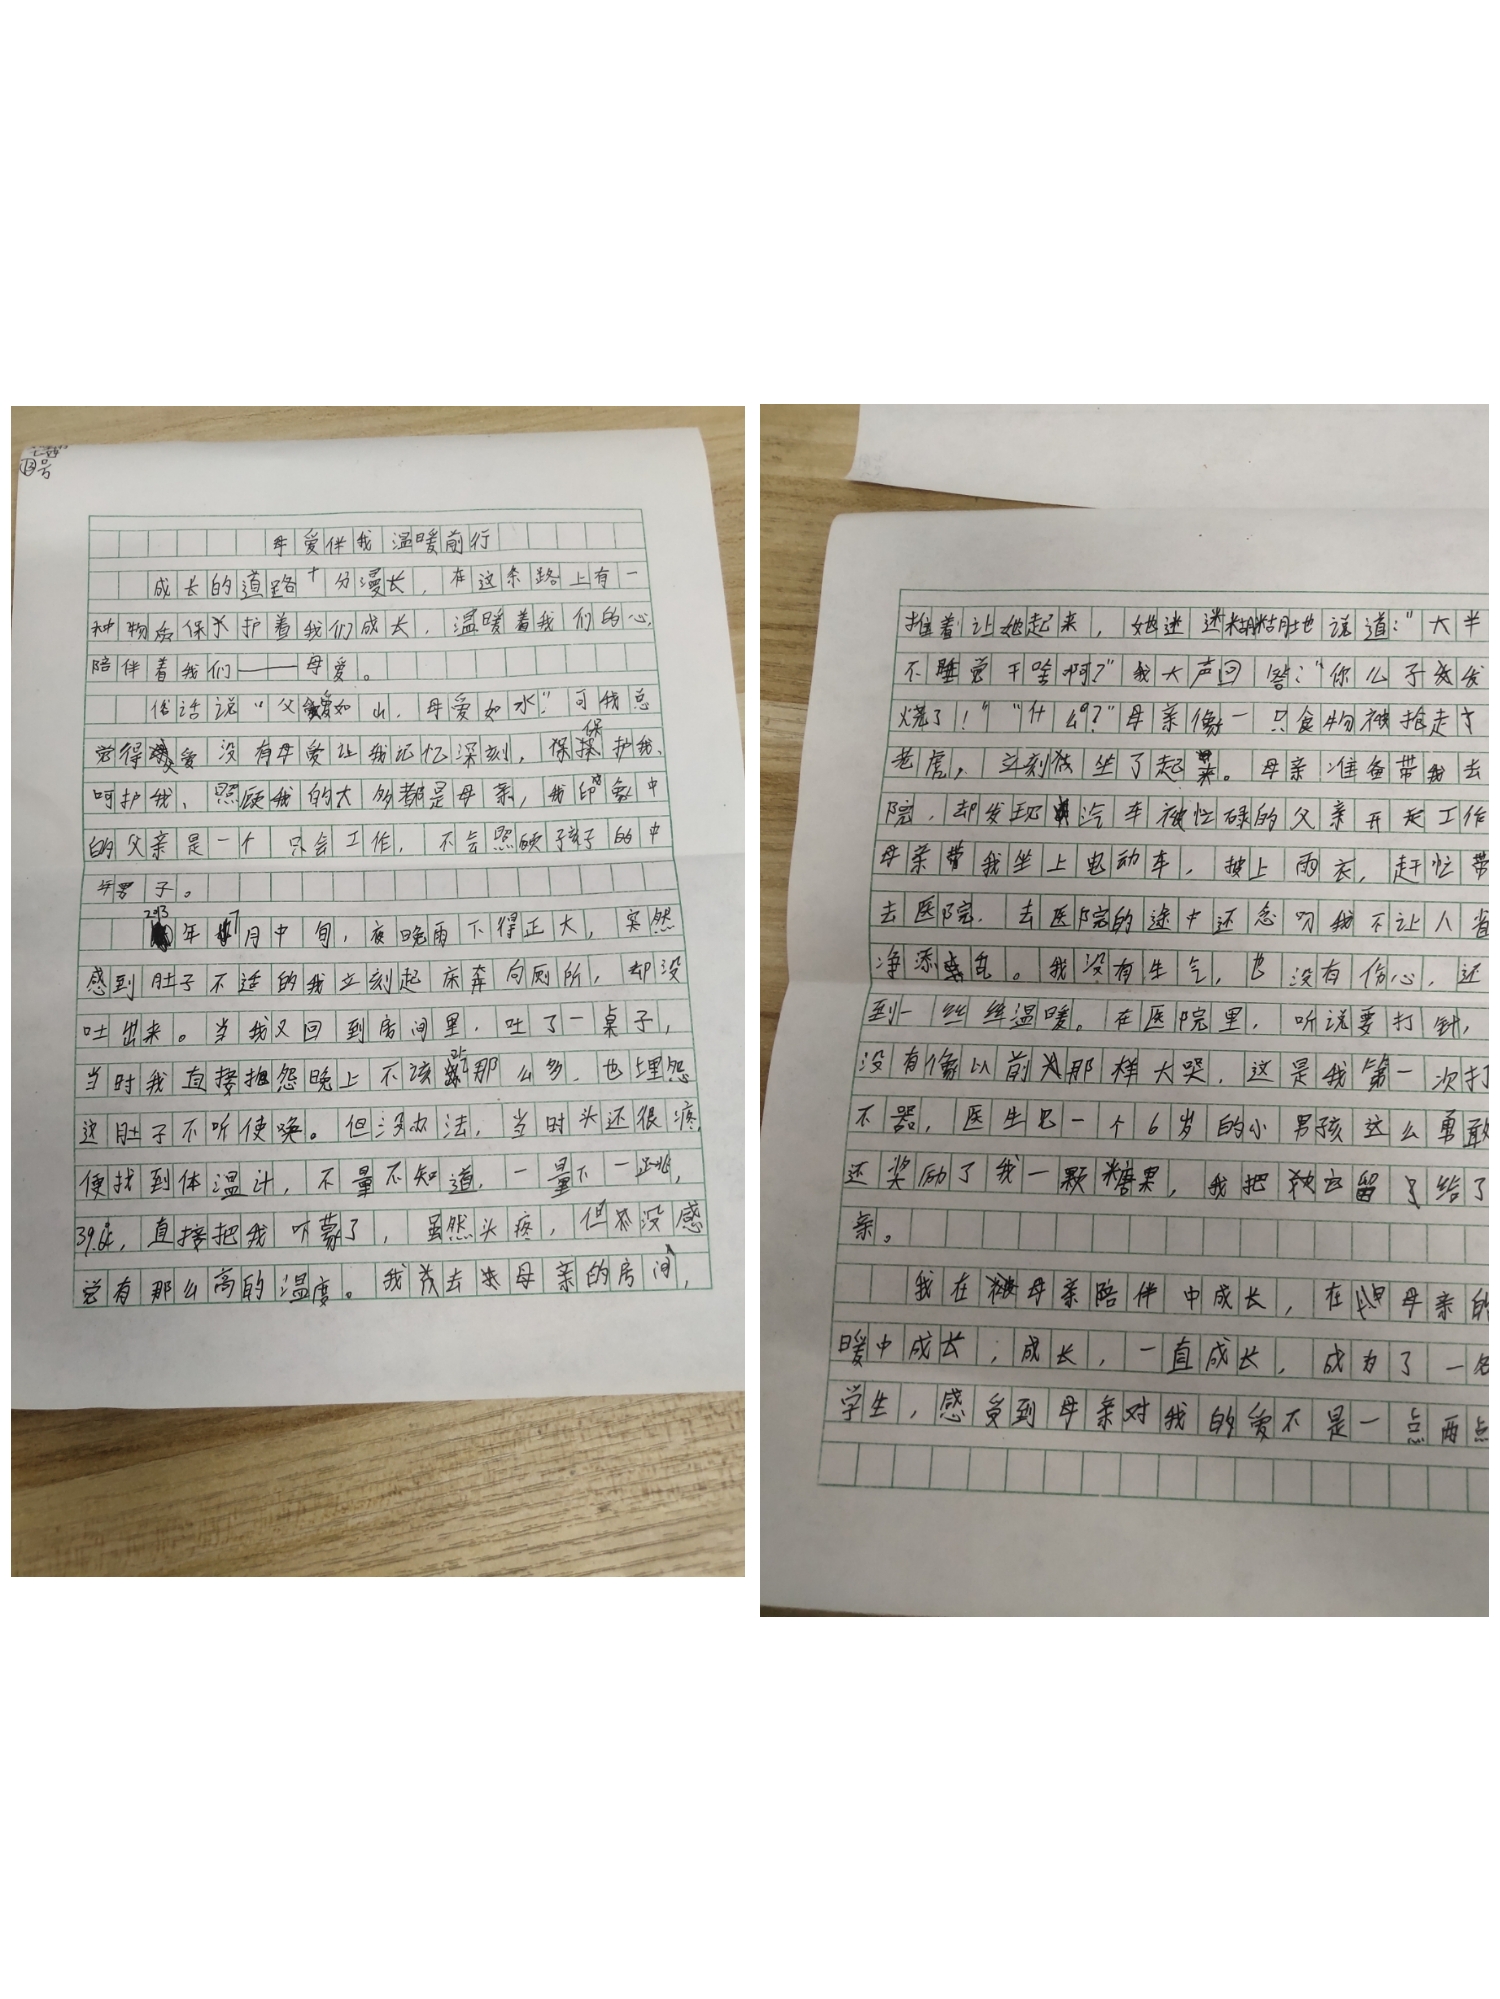 号
母爱伴我温暖前行
成长的道路十分漫长，在这条路上有一
种物质保护着我们成长，温暖着我们的心，
陪伴着我们——母爱。
俗话说“父爱如山，母爱如水”。可我总
觉得父爱没有母爱让我记忆深刻，保护我、
呵护我、照顾我的大多都是母亲，我印象中
的父亲是一个只会工作，不会照顾孩子的中
年男子。
2013年7月中旬，夜晚雨下得正大，突然
感到肚子不适的我立刻起床奔向厕所，却没
吐出来。当我又回到房间里，吐了一桌子，
当时我直接抱怨晚上不该吃那么多，也埋怨
这肚子不听使唤。但没办法，当时头还很疼，
便找到体温计，不量不知道，一量下一跳，
39.6℃，直接把我吓蒙了，虽然头疼，但没感
觉有那么高的温度。我去母亲的房间，
推着让她起来，她迷迷糊糊地说道：“大半
不睡觉干啥啊？”我大声回答：“你么子我发
烧了！”“什么？”母亲像一只食物被抢走了
老虎，立刻坐了起来。母亲准备带我去
院，却发现汽车被忙碌的父亲开走工作
母亲带我坐上电动车，披上雨衣，赶忙带
去医院，去医院的途中还念叨我不让人省
净添乱。我没有生气，也没有伤心，还
到一丝丝温暖。在医院里，听说要打针，
没有像以前那样大哭，这是我第一次打
不哭，医生见一个6岁的小男孩这么勇敢
还奖励了我一颗糖果，我把它留给了
亲。
我在母亲陪伴中成长，在母亲的
暖中成长，成长，一直成长，成为了一名
学生，感受到母亲对我的爱不是一点两点